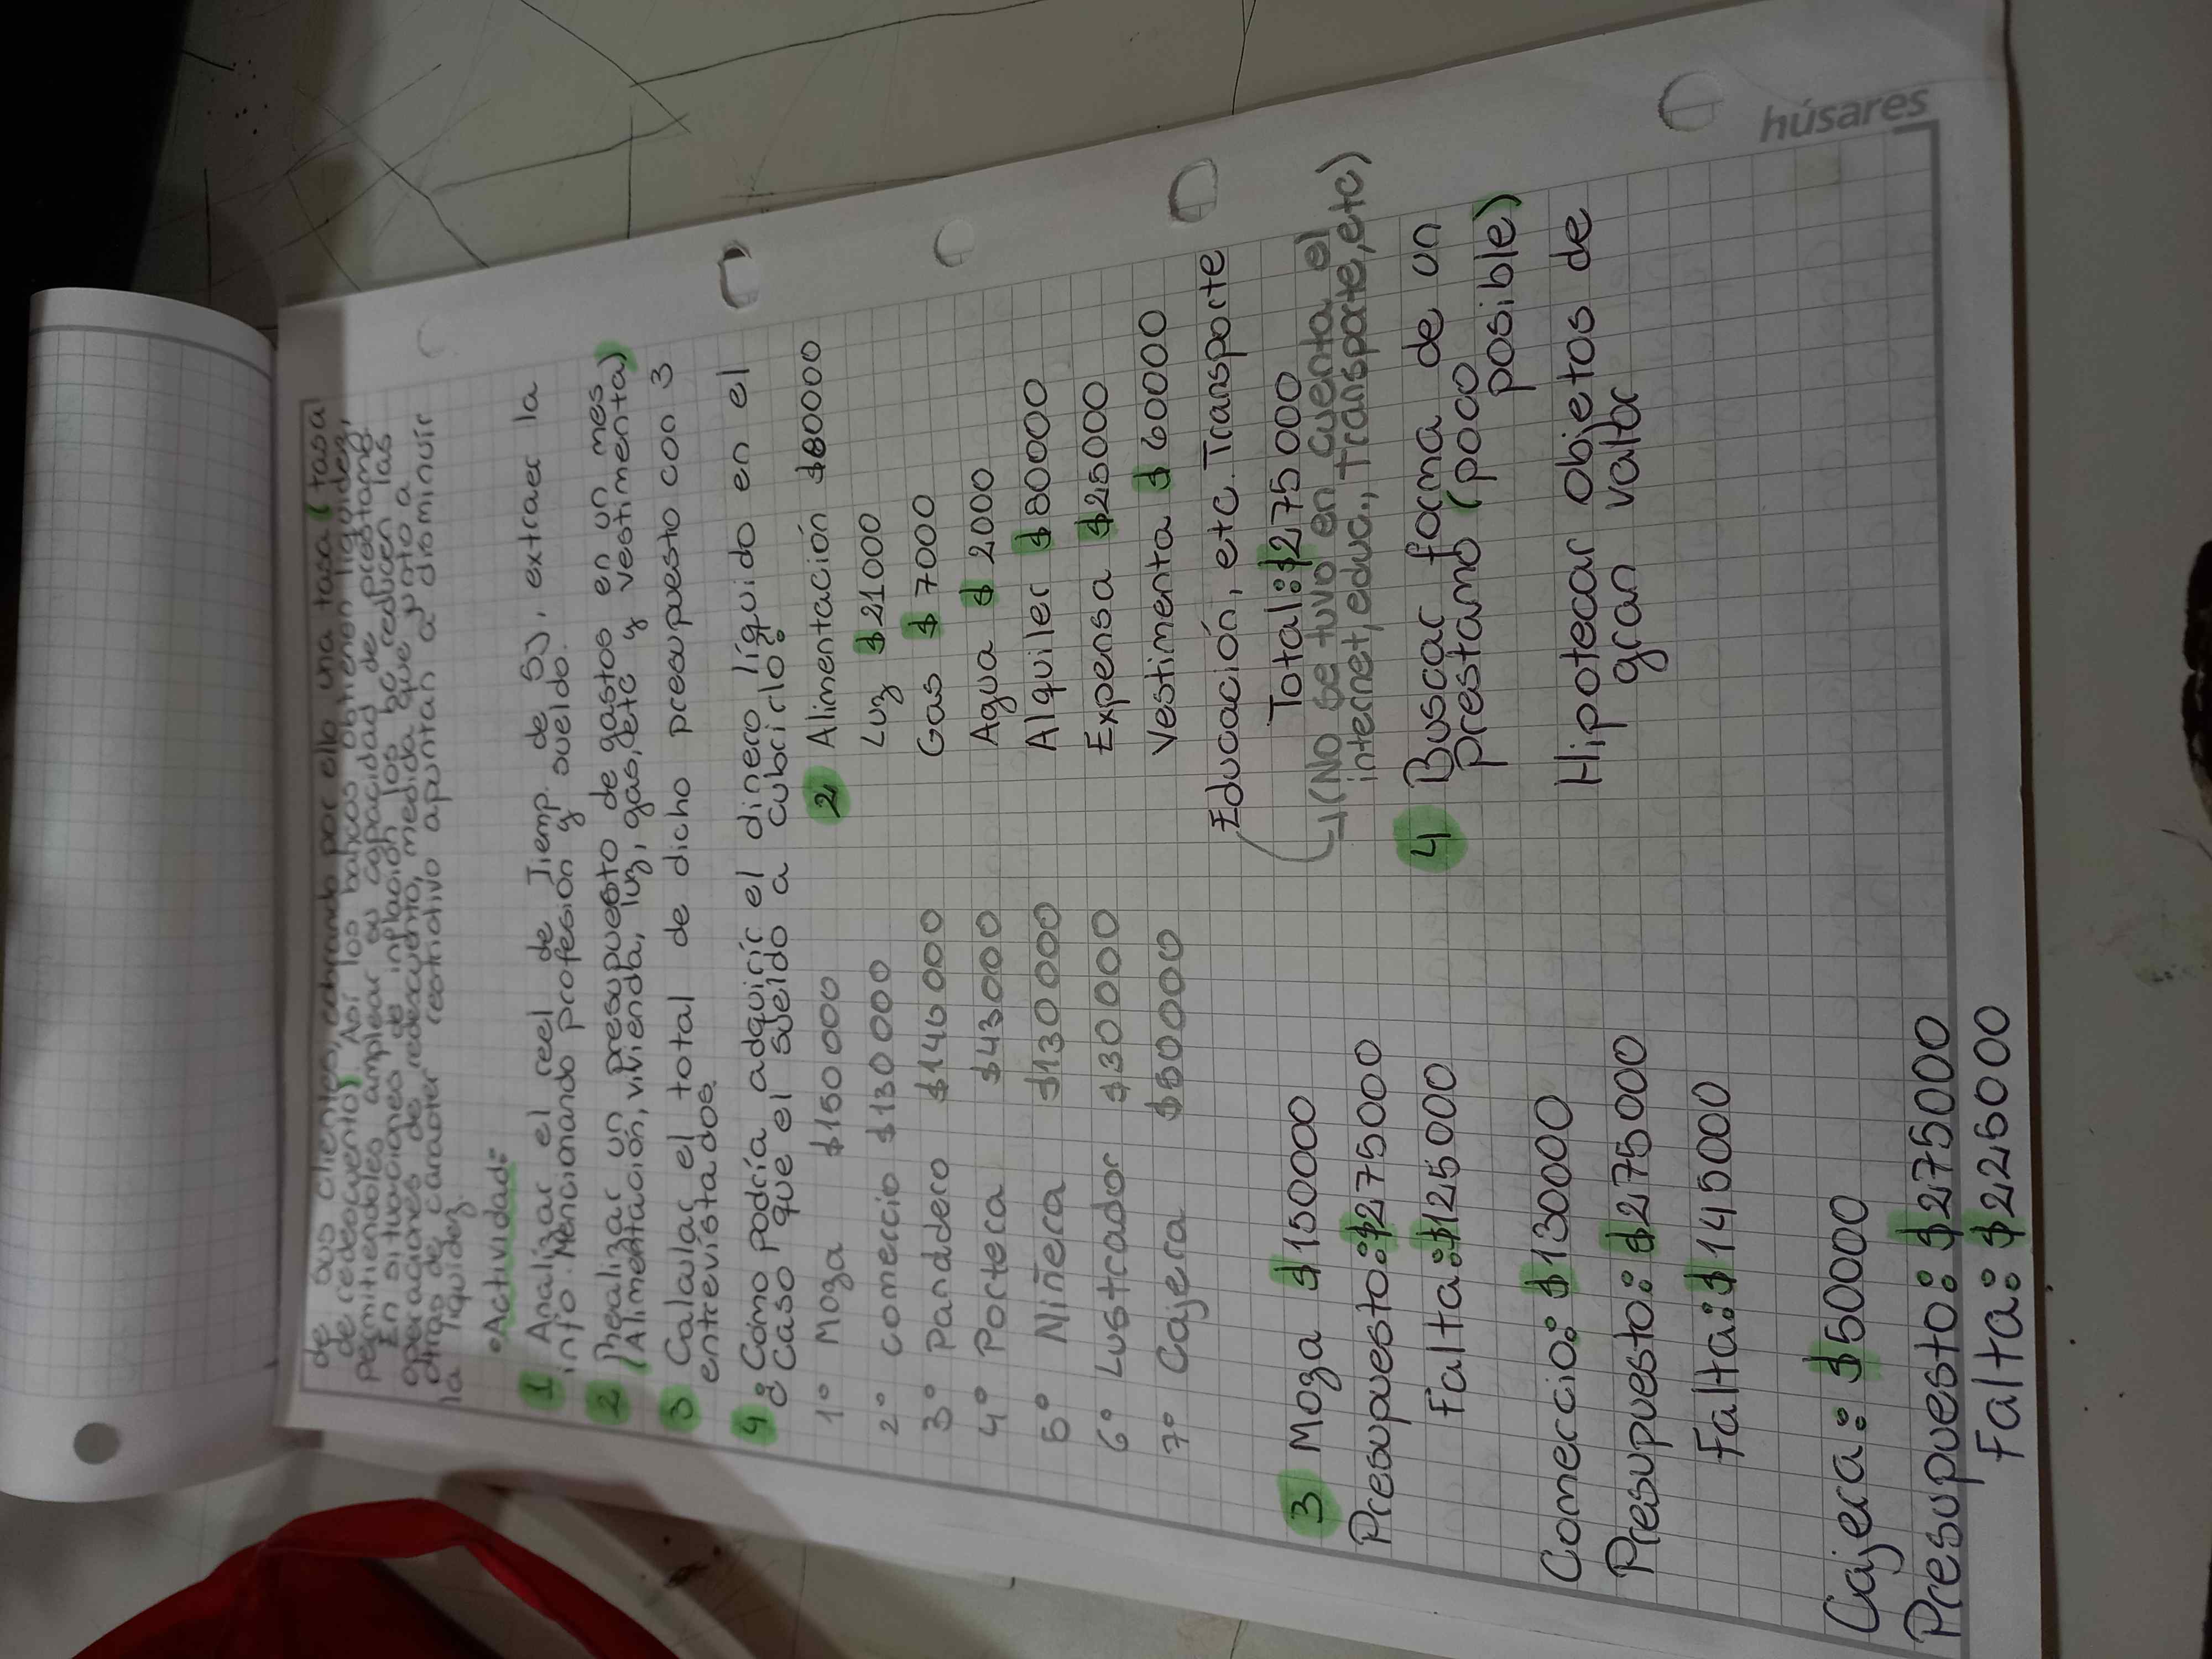 de sus clientes, cobrando por ello una tasa (tasa
de redescuento). Así los bancos obtienen liquidez,
permitiendoles ampliar su capacidad de prestamo.
En situaciones de inflación los bc reducen las
operaciones de redescuento, medida que junto a
otras de caracter restrictivo apuntan a disminuir
la liquidez.
•Actividad:
1 Analizar el reel de Tiemp. de SJ, extraer la
info. Mencionando profesión y sueldo.
2 Realizar un presupuesto de gastos en un mes
(Alimentación, vivienda, luz, gas, etc y vestimenta)
3 Calcular el total de dicho presupuesto con 3
entrevistados.
4 Como podría adquirir el dinero líquido en el
¿Caso que el sueldo a cubrirlo?
1° Moza $150000
2° comercio $130000
3° Panadero $146000
4° Portera $43000
5° Niñera $130000
6° Lustrador $30000
7° Cajera $50000
2 Alimentación $80000
Luz $21000
Gas $7000
Agua $2000
Alquiler $80000
Expensa $25000
Vestimenta $60000
Educación, etc. Transporte
Total: $275000
(No se tuvo en cuenta el
internet, educ., transporte, etc)
3 Moza $150000
Presupuesto: $275000
Falta: $125000
Comercio: $130000
Presupuesto: $275000
Falta: $145000
Cajera: $50000
Presupuesto: $275000
Falta: $225000
4 Buscar forma de un
prestamo (poco
posible)
Hipotecar objetos de
gran valor
húsares